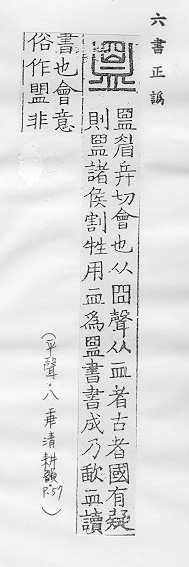 六書正譌
𧖸眉兵切會也从囧聲从血者古者國有疑
則𧖸諸侯割牲用血為𧖸書書成乃歃血讀
書也會意
俗作盟非
(平聲·八庚清耕韻 P.57)